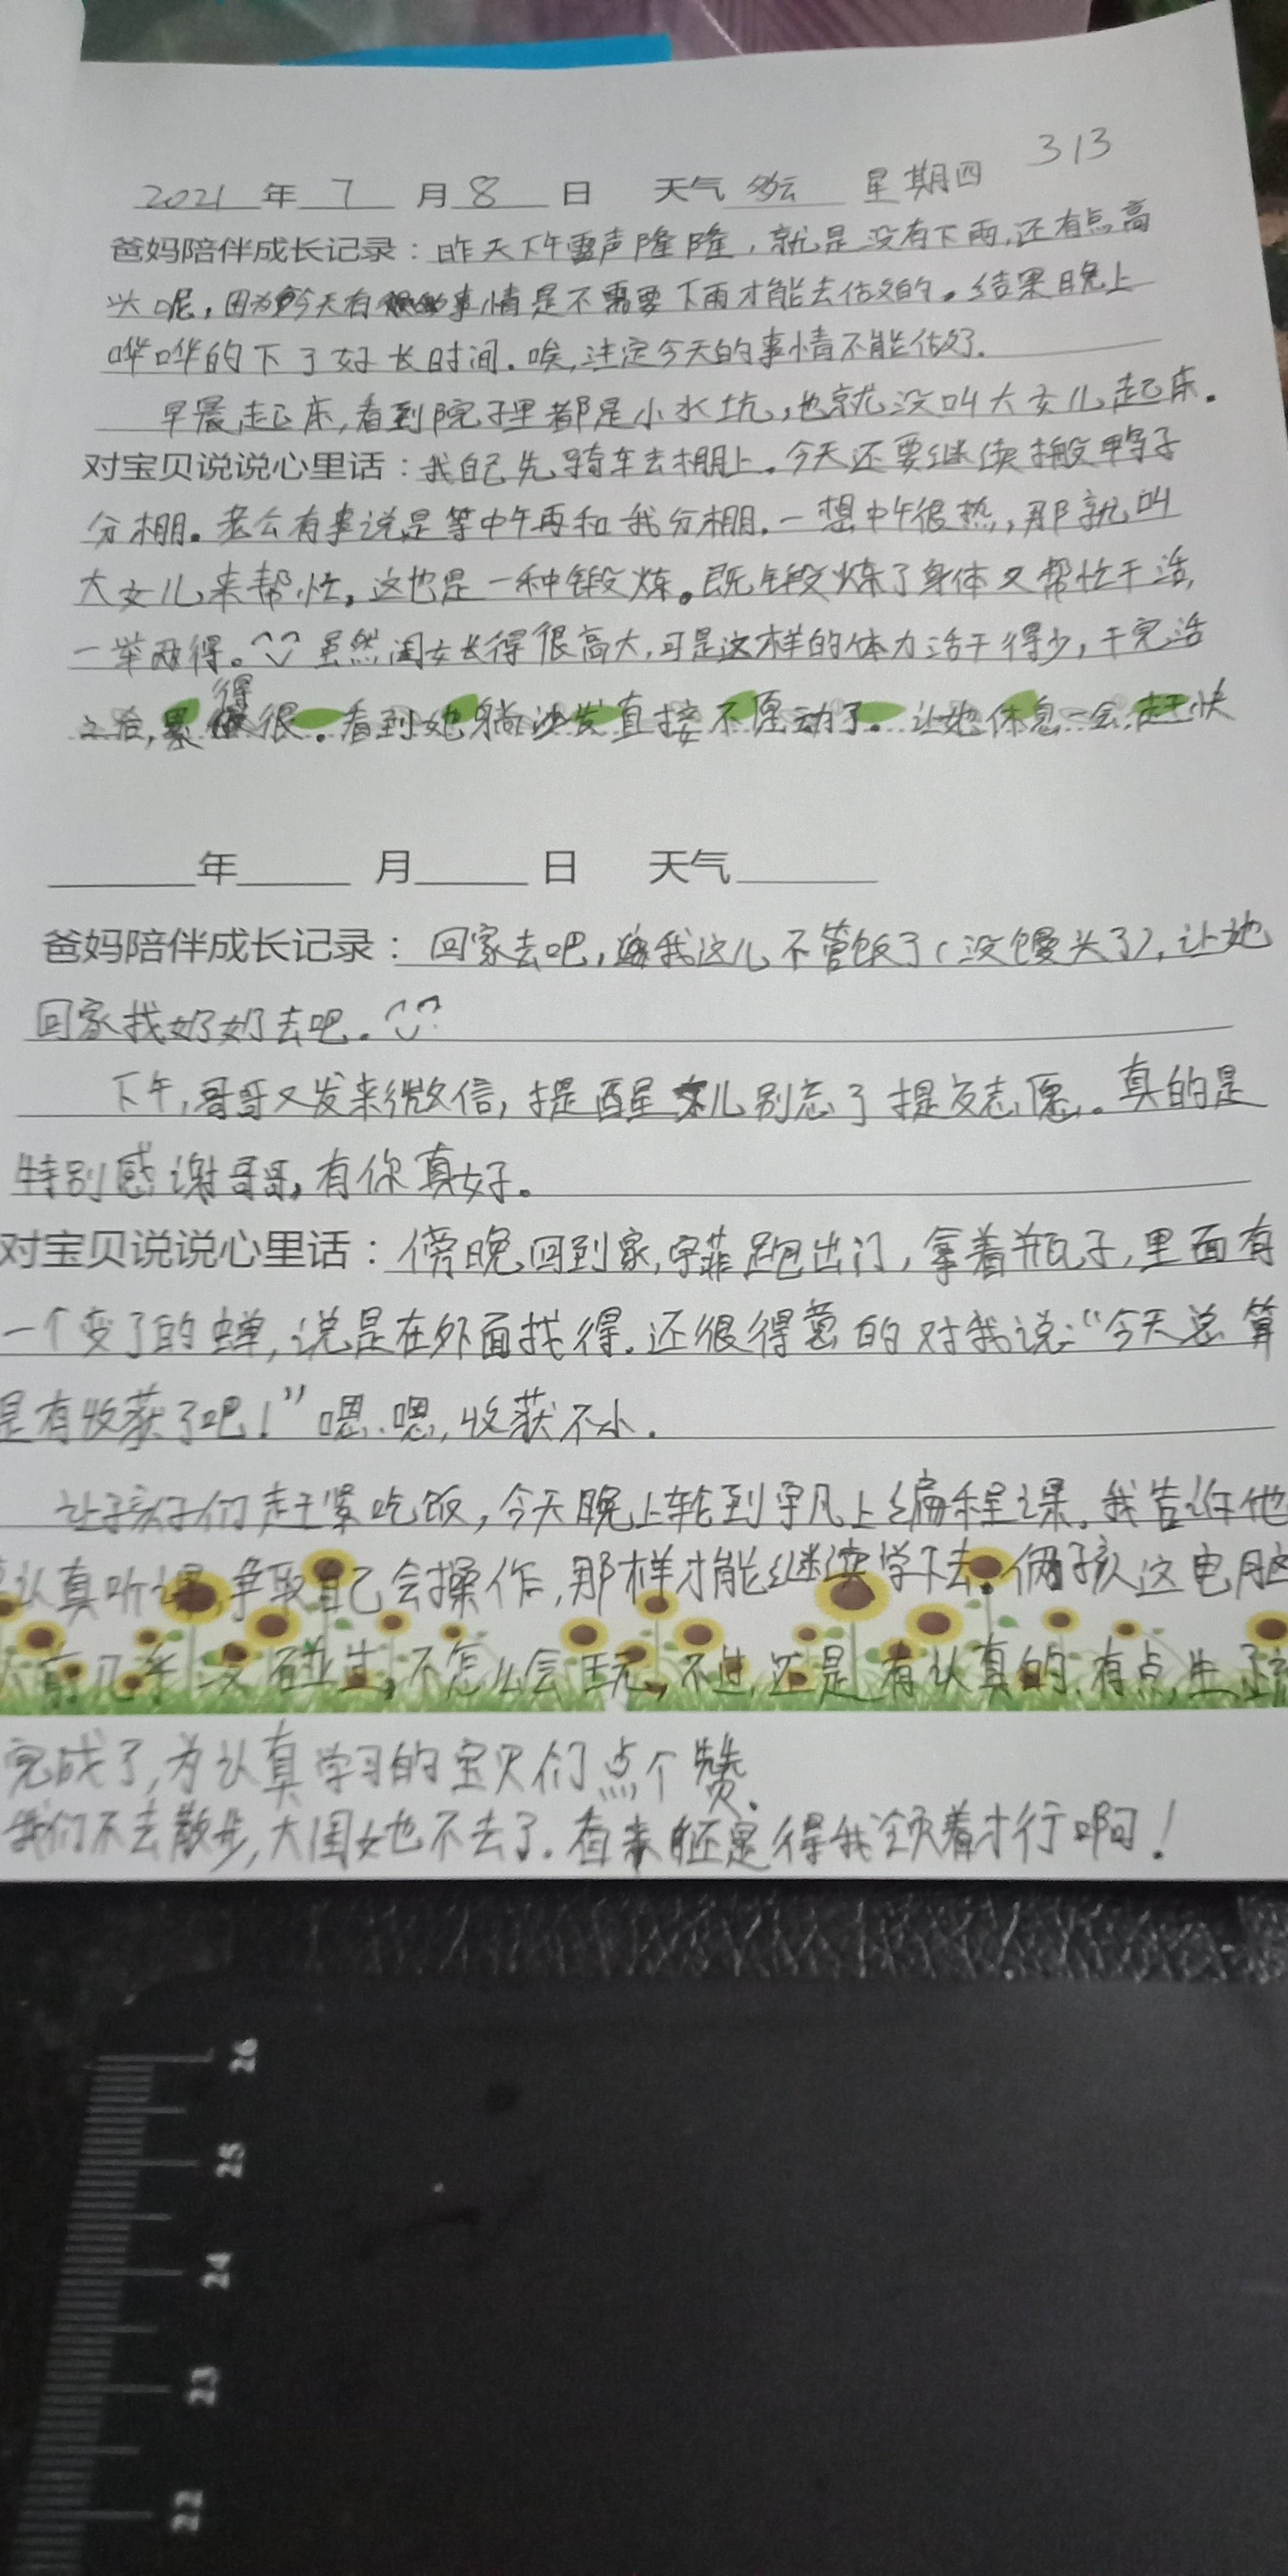 313
2021年7月8日 天气 多云 星期四
爸妈陪伴成长记录：昨天下午雷声隆隆，就是没有下雨，还有点高
兴呢，因为今天有事情是不需要下雨才能去做的。结果晚上
哗哗的下了好长时间。唉，注定今天的事情不能做了。
早晨起床，看到院子里都是小水坑，也就没叫大女儿起床。
对宝贝说说心里话：我自己先骑车去棚上。今天还要继续搬鸭子
分棚。老公有事说是等中午再和我分棚，一想中午很热，那就叫
大女儿来帮忙，这也是一种锻炼。既锻炼了身体又帮忙干活，
一举两得。虽然闺女长得很高大，可是这样的体力活干得少，干完活
之后，累得很。看到她躺沙发直接不愿动了。让她休息一会，赶快
年 月 日 天气
爸妈陪伴成长记录：回家去吧，我这儿不管饭了（没馒头了），让她
回家找奶奶去吧。
下午，哥哥又发来微信，提醒女儿别忘了提交志愿。真的是
特别感谢哥哥，有你真好。
对宝贝说说心里话：傍晚回到家，宇菲跑出门，拿着瓶子，里面有
一个变了的蝉，说是在外面找得。还很得意的对我说：“今天总算
是有收获了吧！”嗯、嗯，收获不小。
让孩子们赶紧吃饭，今天晚上轮到宇凡上编程课。我告诉他
认真听课，争取自己会操作，那样才能继续学下去。俩孩这电脑
前几年没碰过，不怎么会玩，不过还是有认真的，有点生
完成了，为认真学习的宝贝们点个赞。
我们不去散步，大闺女也不去了。看来还是得我领着才行啊！
26
25
24
23
22